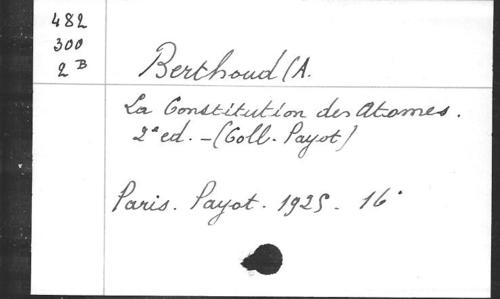 482
300
2 B
Berthoud (A.
La Constitution des Atomes.
2ª ed. - (Coll. Payot)
Paris. Payot. 1925. 16°